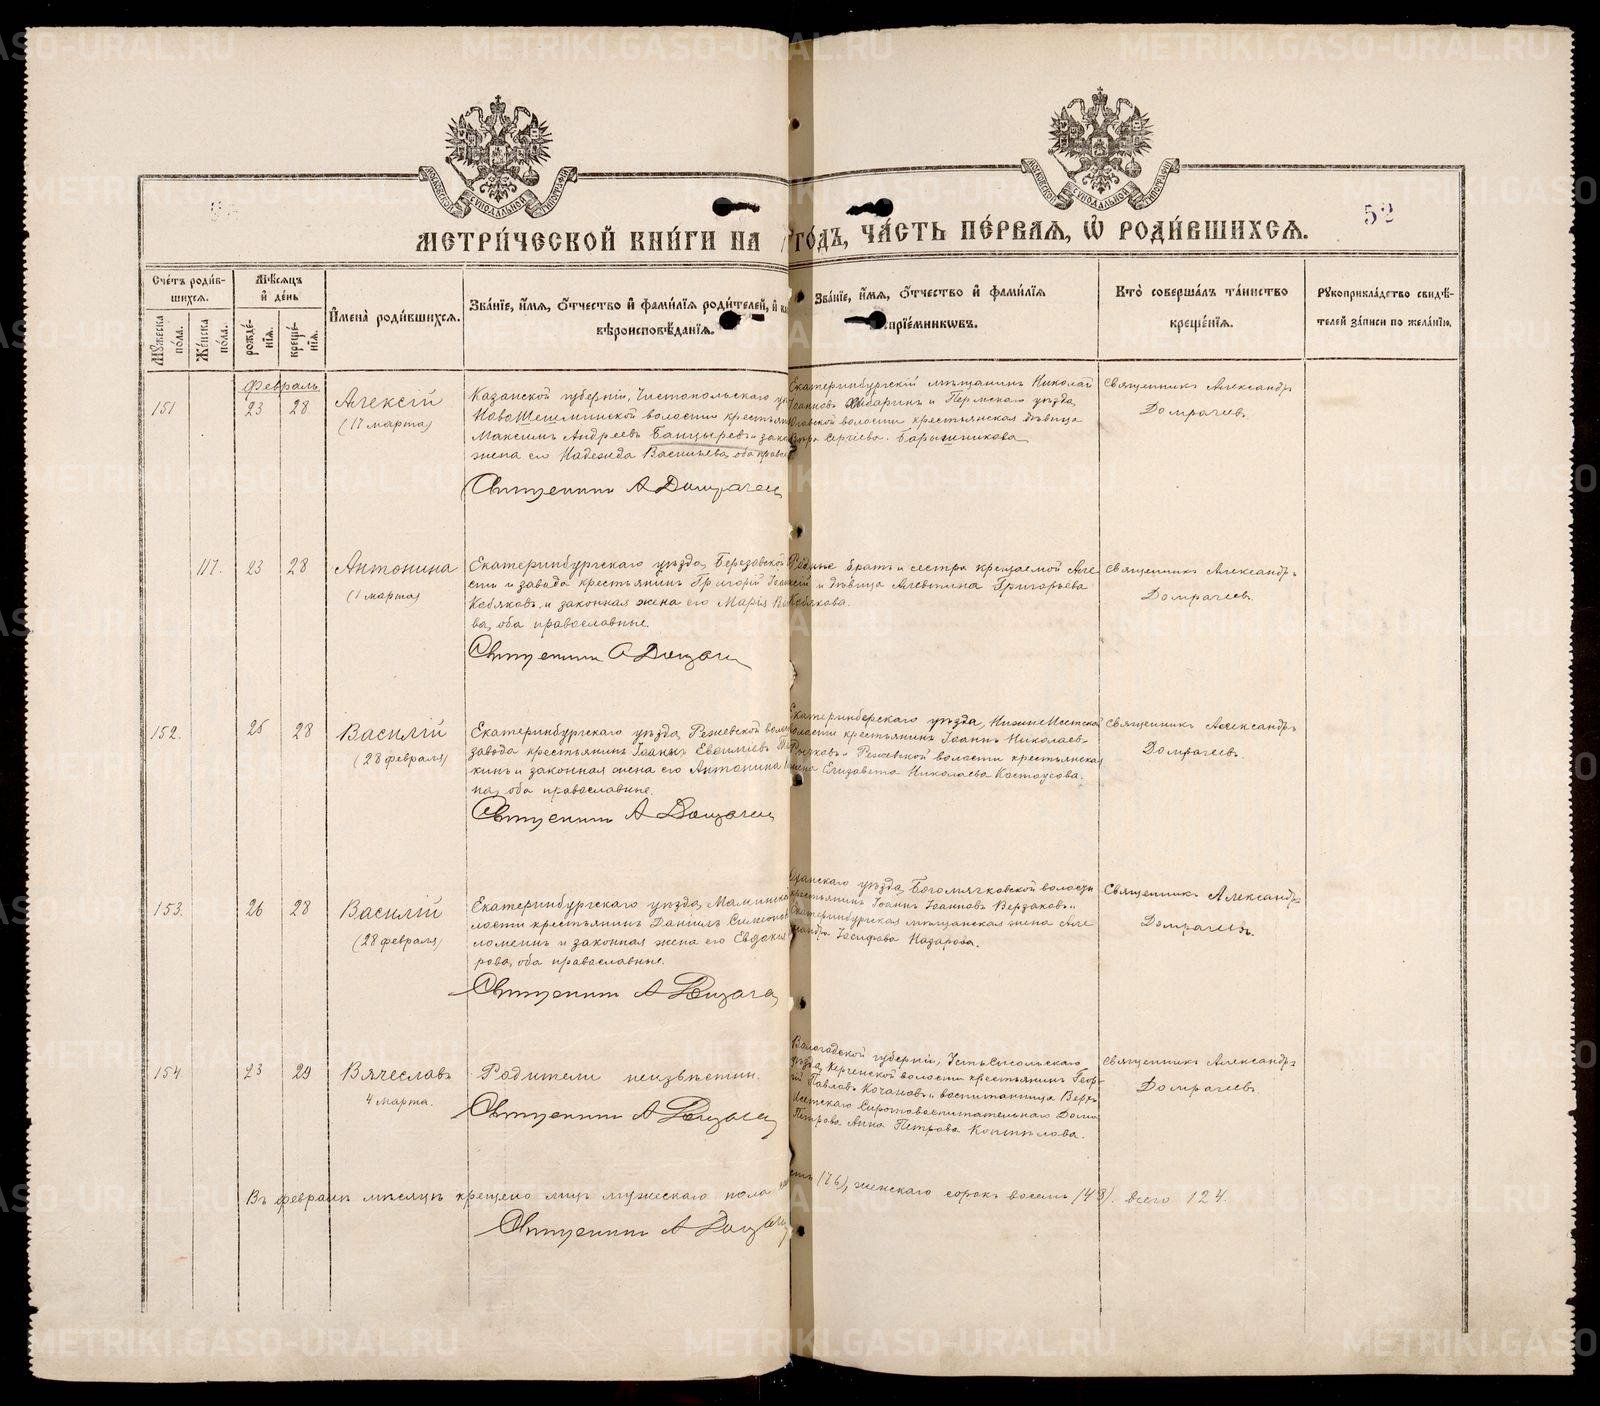 METRIKI.GASO-URAL.RU
52
МЕТРИ́ЧЕСКОЙ КНИ́ГИ НА
ГО́ДЪ, ЧА́СТЬ ПЕ́РВАЯ, Ѡ РОДИ́ВШИХСЯ.
Сче́тъ роди́в-
шихся.
Мꙋ́жеска по́ла.
Же́нска по́ла.
Мѣ́сяцъ и́ де́нь
рожде́нїя.
креще́нїя.
И҆мена̀ роди́вшихся.
Зва́нїе, и҆́мя, ѻ҆́тчество и҆ фами́лїя роди́телей, и҆
вѣроисповѣ́данїя.
Зва́нїе, и҆́мя, ѻ҆́тчество и҆ фами́лїя
спрїе́мникѡвъ.
Кто̀ соверша́лъ та́инство
креще́нїя.
Рꙋкоприкла́дство свидѣ́-
телей за́писи по жела́нїю.
Февраль
151
23
28
Алексій
(17 марта)
Казанской губерніи, Чистопольскаго
НовоШешминской волости
Максимъ Андреевъ Банцыревъ и
жена его Надежда Васильева, оба
Священникъ А Домрачевъ
Екатеринбургскій мѣщанинъ Николай
Іоанновъ и Пермскаго уѣзда,
волости крестьянская дѣвица
Сергіева Барышникова
Священникъ Александръ
Домрачевъ.
117.
23
28
Антонина
(1 марта)
Екатеринбургскаго уѣзда, Березовской
и завода крестьянинъ Григорій
Кобяковъ и законная жена его Марія
ва, оба православные.
Священникъ А Домрачевъ
Родные братъ и сестра крещаемой Але
ксій и дѣвица Алевтина Григорьева
Кобякова.
Священникъ Александръ
Домрачевъ.
152.
25
28
Василій
(28 февраля)
Екатеринбургскаго уѣзда, Режевской
завода крестьянинъ Іоаннъ Евѳиміевъ
кинъ и законная жена его Антонина
на, оба православные.
Священникъ А Домрачевъ
уѣзда, НижнеИсетской
волости крестьянинъ Іоаннъ Николаевъ
и Режевской волости крестьянская
Елизавета Николаева Костоусова.
Священникъ Александръ
Домрачевъ.
153.
26
28
Василій
(28 февраля)
Екатеринбургскаго уѣзда, Маминской
лости крестьянинъ Даніилъ
и законная жена его Евдокія
рова, оба православные.
Священникъ А Домрачевъ
уѣзда, волости
крестьянинъ Іоаннъ Іоанновъ Верзаковъ и
Екатеринбургская мѣщанская жена Але
ксандра Іосифова Назарова.
Священникъ Александръ
Домрачевъ.
154.
23
29
Вячеславъ
4 марта.
Родители неизвѣстны.
Священникъ А Домрачевъ
Вологодской губерніи, УстьСысольскаго
уѣзда, волости крестьянинъ Геор-
гій Павловъ Кочановъ и воспитанница Верх-
Исетскаго Сиротовоспитательнаго Дома
Петрова Анна Петрова
Священникъ Александръ
Домрачевъ
Въ февралѣ мѣсяцѣ крещено лицъ мужескаго пола
(76), женскаго сорокъ восемь (48). всего 124.
Священникъ А Домрачевъ